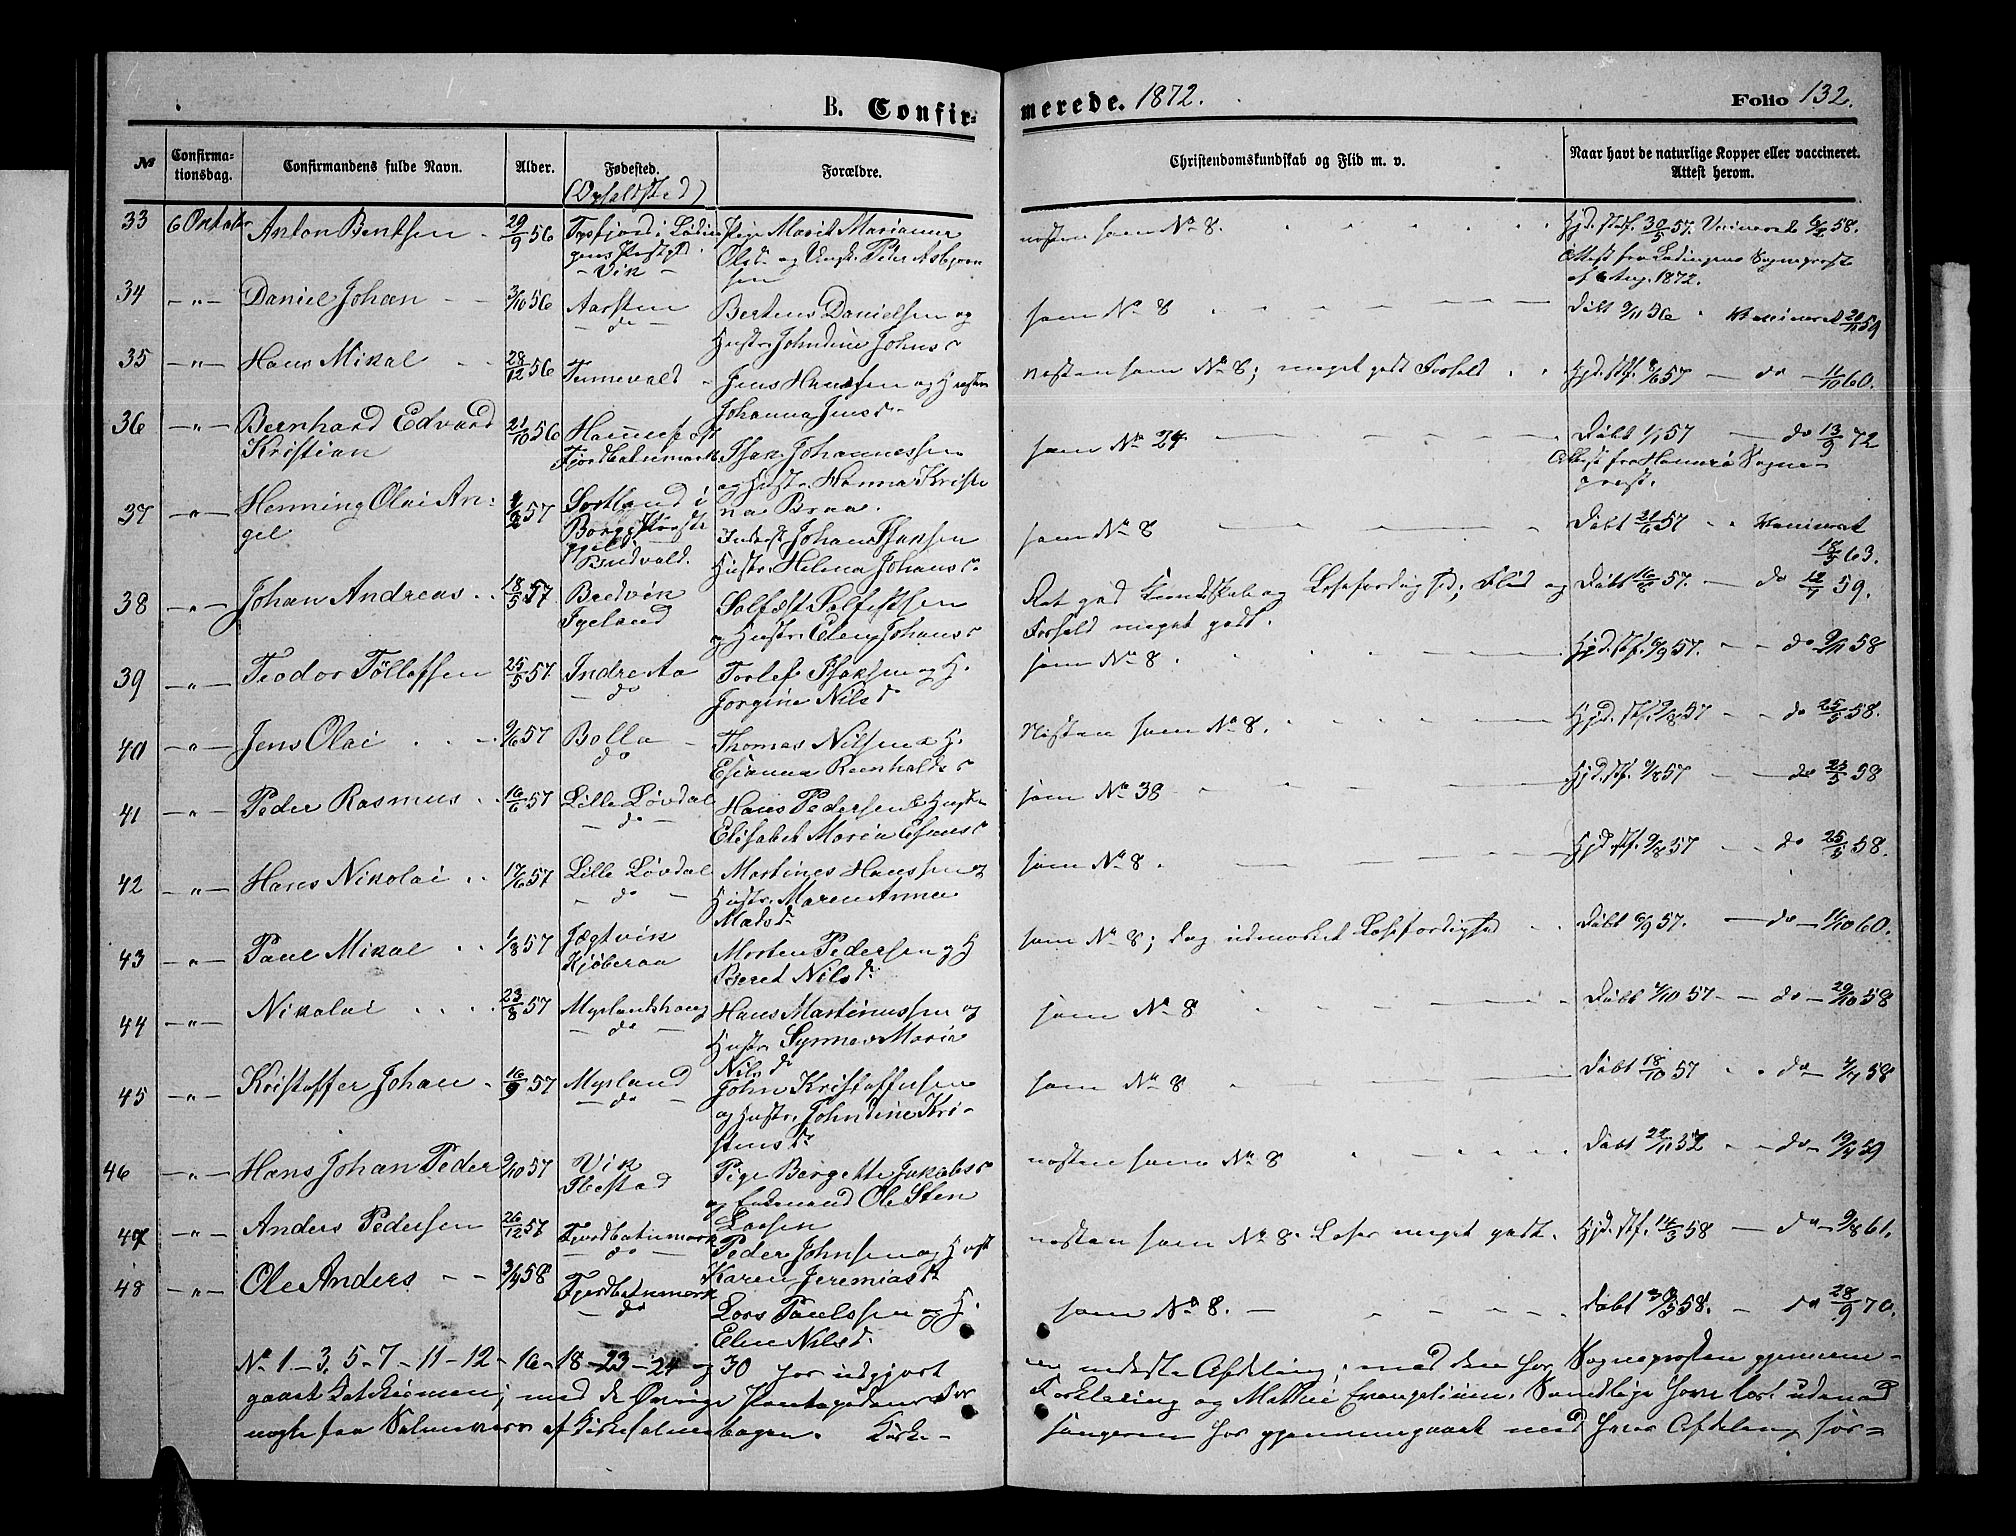 B. Confirmerede. 1872.
Folio 132.
№
Confirmationsdag.
Confirmandens fulde Navn.
Alder.
Fødested.
(Opholdsted)
Forældre.
Christendomskundskab og Flid m. v.
Naar havt de naturlige Kopper eller vaccineret.
Attest herom.
33 6 October Anton Bentsen 29/9 56 Tysfjord i Lødin
gens
Vik
Pige Marit Marianna
Olsd. og Ungk. Peder Asbjørn
sen
næsten som No 8.
Hjd. Stf. 30/5 57. Vaccineret 6/2 58.
Attest fra Lødingens Sognepræst
af 6 Aug. 1872.
34 — " — Daniel Johan 3/10 56 Aarsten
do
Bertens Danielsen og
Hustr. Johndine Johnsd
som No 8
Døbt 9/11 56 Vaccineret 20/11 59
35 — " — Hans Mikal 28/12 56 Tunnevald
Jens Hansen og Hustr
Johanna Jensd
næsten som No 8; meget godt Forhold
Hjd. Stf. 57 — do — 11/10 60.
36 — " — Bernhard Edvard
Kristian
21/10 56
Fjordbotnmark
Isak Johannessen
og Hustr. Hanna Kristi
na Braa.
som No 24
Døbt 1/1 57 — do 13/9 72
Attest fra Hamarø Sogne-
præst.
37 — " — Henning Olai An-
gel
57 Sortland i
Budvald.
Inderst Johan Isaksen
Hustr. Helena Johansd
som No 8
Døbt 21/6 57 Vaccineret
18/5 63.
38 — " — Johan Andreas 18/5 57 Bredvik
Tyeland
Solfæst Solfestsen
og Hustr. Elen Johansd
Ret god Kundskab og Læsefærdighed; Flid og
Forhold meget godt.
Døbt 57. — do 12/7 59.
39 — " — Teodor Tølleffsen 25/5 57 Indre Aa
do
Torlef Isaksen og H.
Jorgine Nilsd
som No 8
Hjd. Stf. 6/9 57. — do 9/11 58
40 — " — Jens Olai 9/6 57 Bolla
do
Thomas Nilsen & H.
Esianna Reinholdsd
Næsten som No 8.
Hjd. Stf. 9/8 57 — do 25/5 58.
41 — " — Peder Rasmus 16/6 57 Lille Løvdal
do
Hans Pedersen & Hustr
Elisabet Maria Esaiasd
som No 38
Hjd. Stf. 9/8 57 — do 25/5 58
42 — " — Hans Nikolai 17/6 57 Lille Løvdal
do
Martines Hanssen og
Hustr. Maren Anna
Madsd.
som No 8.
Hjd. Stf. 9/8 57 — do 25/5 58.
43 — " — Paul Mikal 1/8 57 Jægtvik
Kjøberaa
Morten Pedersen og H
Beret Nilsd.
som No 8; dog udmærket Læsefærdighed
Døbt 6/9 57. — do — 11/10 60.
44 — " — Nikolai 23/8 57 Myrlandshaug
do
Hans Martinussen og
Hustr. Synnev Maria
Nilsd
som No 8
Døbt 4/10 57 — do — 29/10 58
45 — " — Kristoffer Johan 16/9 57 Myrland
do
John Kristoffersen
og Hustr. Johndine Kri-
stensd.
som No 8
Døbt 18/10 57 do 58
46 — " — Hans Johan Peder 9/10 57 Vik
Ibestad
Pige Bergette Jakobsd
og Enkemand Ole Sten
Larsen
næsten som No 8
Døbt 22/11 57 — do — 19/4 59
47 — " — Anders Pedersen 26/12 57 Fjordbotnmark
do
Peder Johnsen og Hust
Karen Jeremiasd
næsten som No 8. Læser meget godt.
Hjd. Stf. 14/3 58 — do — 9/8 61.
48 — " — Ole Anders 3/4 58 Fjordbotnmark
do
Lars Paulssen og H.
Elen Nilsd.
som No 8.
Døbt 58. — do 28/9 70.
No 1-3, 5-7-11-12-16-18-23-24 og 30 har udgjort en Afdeling, med den har Sognepræsten gjennem-
gaaet Katekismen; med de Øvrige Forklaring og Matthæi Evangelium. Samtlige have lært udenad
nogle faa Salmevers af Kirkesalmebogen. Kirke-
sangeren har gjennemgaaet med hver Afdeling For-